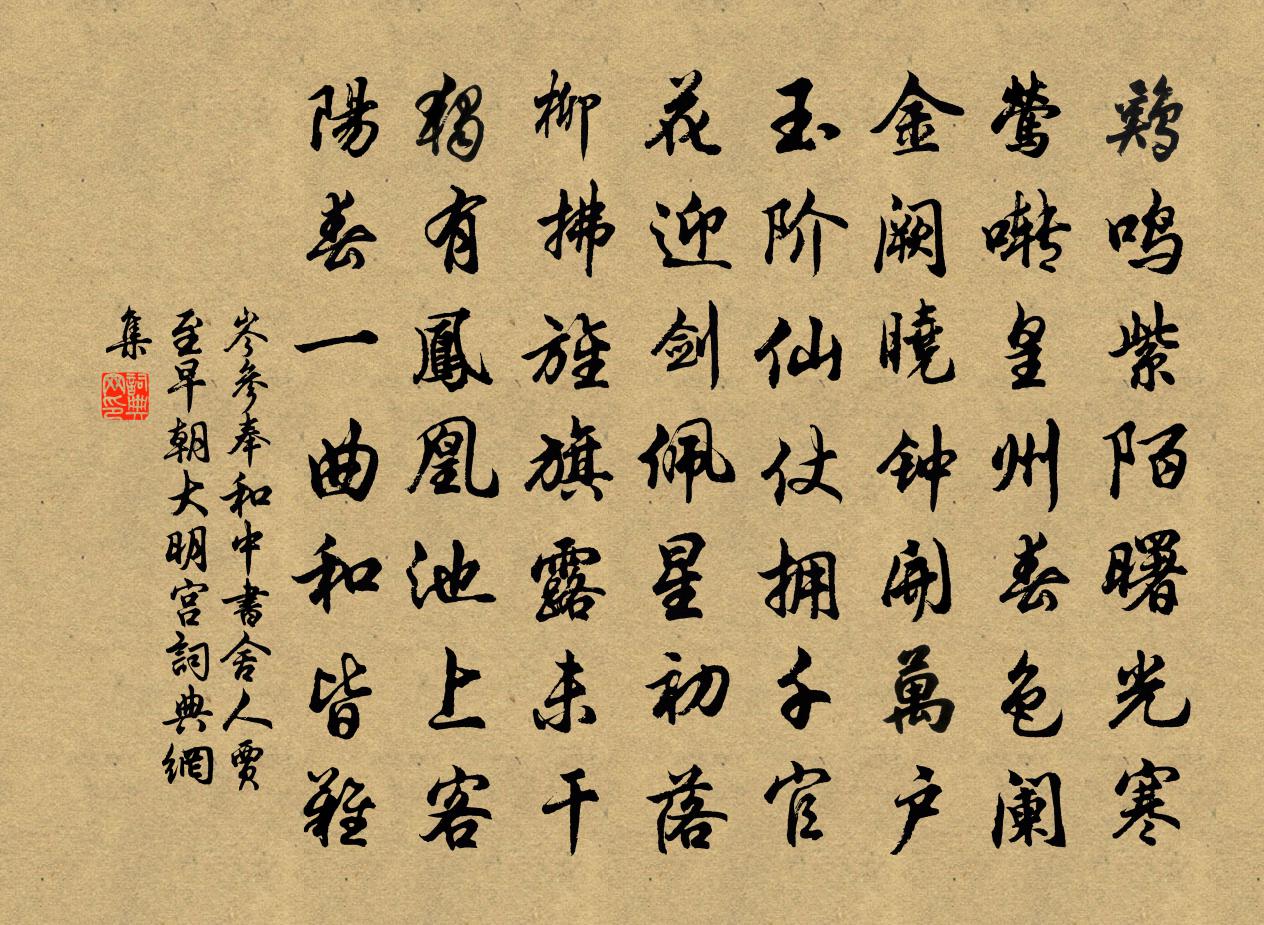 鷄鸣紫陌曙光寒
莺啭皇州春色阑
金阙曉钟開萬户
玉阶仙仗拥千官
花迎剑佩星初落
柳拂旌旗露未干
独有鳳凰池上客
陽春一曲和皆難
岑参奉和中書舍人賈
至早朝大明宫詞典網
集
詞典
网印